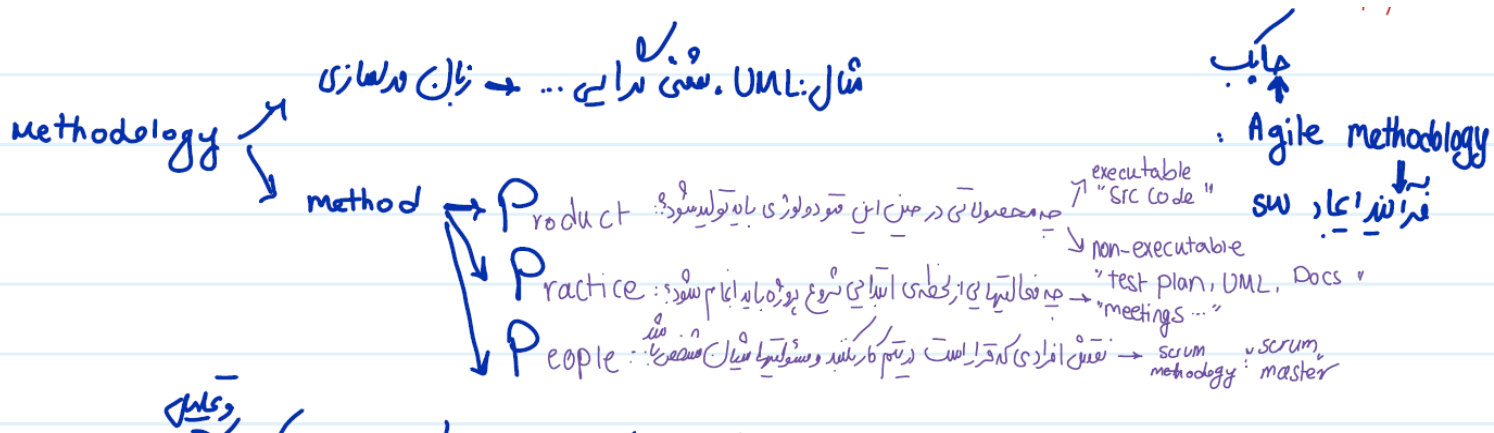 چابک
زبان مدلسازی → مثال: UML، شیء گرایی ...
Methodology
Agile methodology :
فرآیند ایجاد SW
method → Product : چه محصولاتی در حین این متودولوژی باید تولید شود؟
executable
"Src code"
non-executable
"test plan, UML, Docs"
Practice : چه فعالیتهایی از لحظه‌ی ابتدایی شروع پروژه باید انجام شود؟ → "meetings ..."
People : نقش افرادی که قرار است در تیم کار بکنند و مسئولیتها مشخص باشد → scrum methodogy : "scrum master"